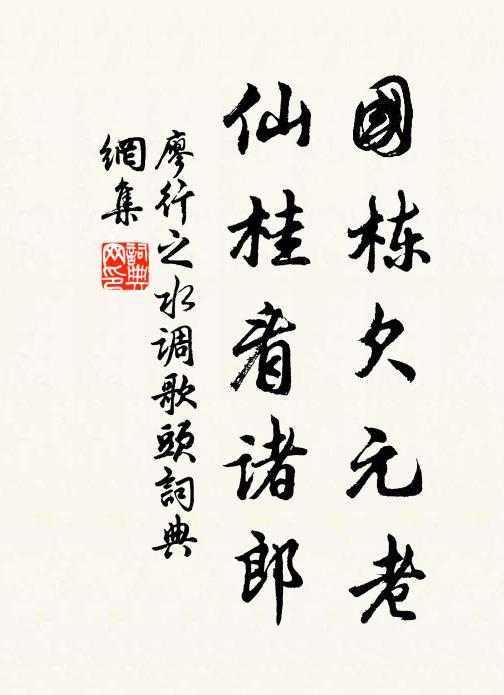 國栋欠元老
仙桂看诸郎
廖行之水调歌頭詞典
網集
詞典
网印